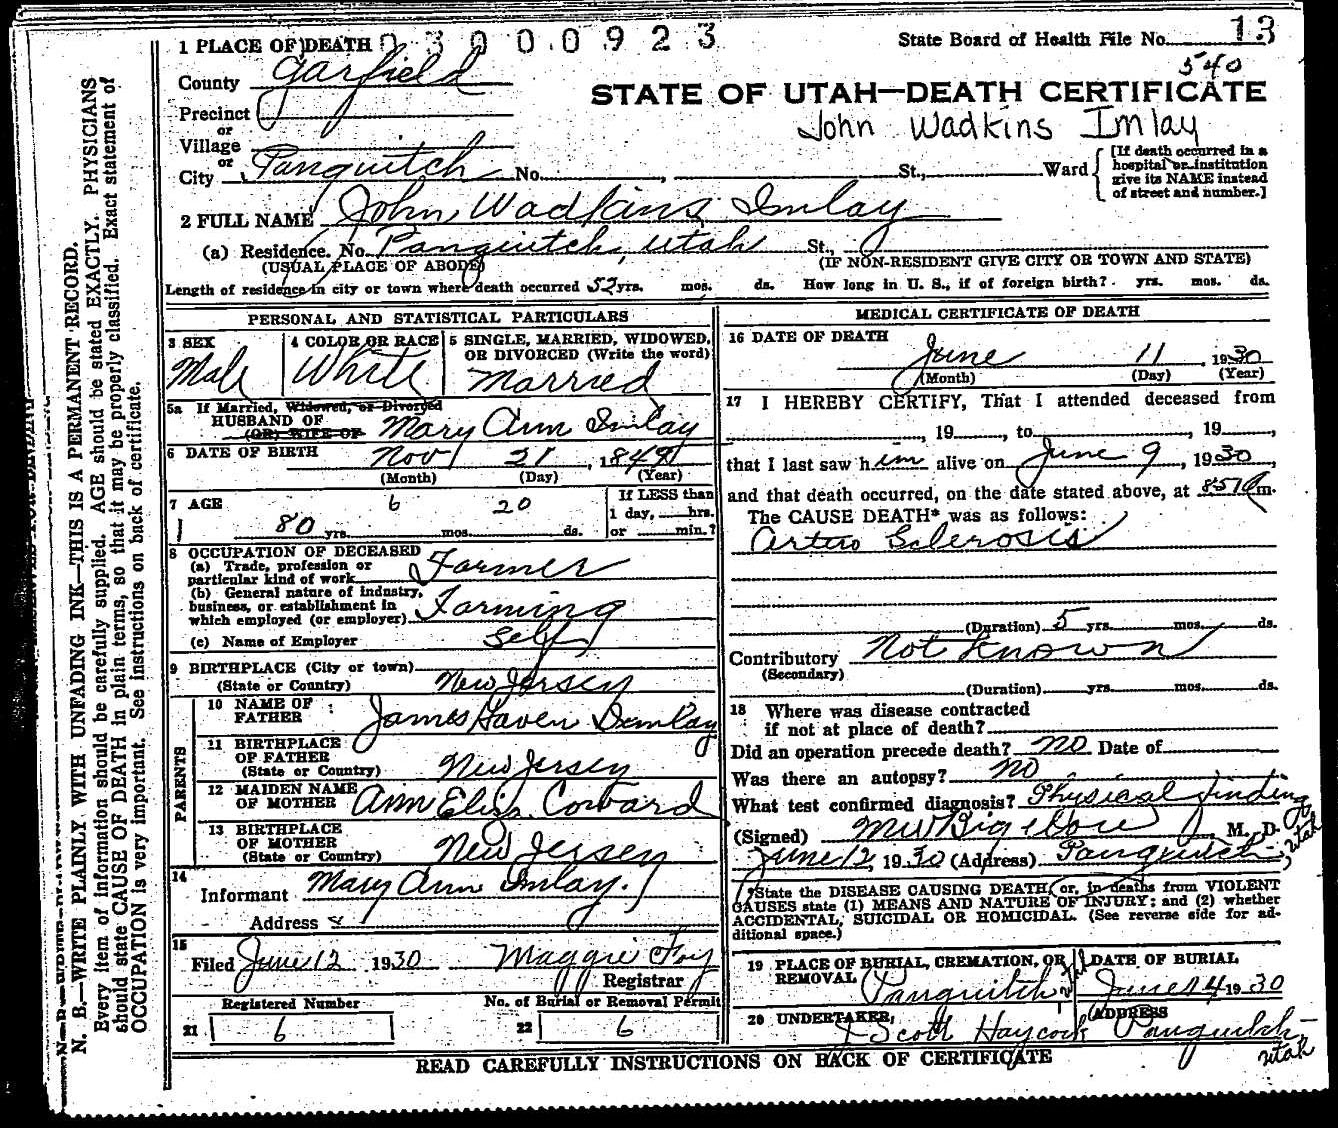 1 PLACE OF DEATH 0 3 0 0 0 9 2 3
State Board of Health File No. 13
540
County Garfield
STATE OF UTAH—DEATH CERTIFICATE
Precinct
John Wadkins Imlay
or
Village
or
City Panguitch No. , St., Ward
[If death occurred in a
hospital or institution
give its NAME instead
of street and number.]
2 FULL NAME John Wadkins Imlay
(a) Residence. No. Panguitch, Utah St.,
(USUAL PLACE OF ABODE) (IF NON-RESIDENT GIVE CITY OR TOWN AND STATE)
Length of residence in city or town where death occurred 52 yrs. mos. ds. How long in U. S., if of foreign birth? yrs. mos. ds.
PERSONAL AND STATISTICAL PARTICULARS
3 SEX
Male
4 COLOR OR RACE
White
5 SINGLE, MARRIED, WIDOWED,
OR DIVORCED (Write the word)
Married
5a If Married, Widowed, or Divorced
HUSBAND OF
(OR) WIFE OF Mary Ann Imlay
6 DATE OF BIRTH Nov 21, 1849
(Month) (Day) (Year)
7 AGE
80 yrs. 6 mos. 20 ds.
If LESS than
1 day, hrs.
or min.?
8 OCCUPATION OF DECEASED
(a) Trade, profession or
particular kind of work Farmer
(b) General nature of industry,
business, or establishment in
which employed (or employer) Farming
(c) Name of Employer Self
9 BIRTHPLACE (City or town)
(State or Country) New Jersey
PARENTS
10 NAME OF
FATHER James Haven Imlay
11 BIRTHPLACE
OF FATHER
(State or Country) New Jersey
12 MAIDEN NAME
OF MOTHER Ann Eliza Coward
13 BIRTHPLACE
OF MOTHER
(State or Country) New Jersey
14
Informant Mary Ann Imlay.
Address
15
Filed June 12 1930 Maggie Foy
Registrar
Registered Number
21 6
No. of Burial or Removal Permit
22 6
MEDICAL CERTIFICATE OF DEATH
16 DATE OF DEATH
June 11, 1930
(Month) (Day) (Year)
17 I HEREBY CERTIFY, That I attended deceased from
, 19 , to , 19 ,
that I last saw him alive on June 9, 1930,
and that death occurred, on the date stated above, at m.
The CAUSE DEATH* was as follows:
Sclerosis
(Duration) 5 yrs. mos. ds.
Contributory Not Known
(Secondary)
(Duration) yrs. mos. ds.
18 Where was disease contracted
if not at place of death?
Did an operation precede death? no Date of
Was there an autopsy? no
What test confirmed diagnosis? Physical finding
(Signed) M W Bigelow, M. D.
June 12, 1930 (Address) Panguitch, Utah
*State the DISEASE CAUSING DEATH, or, in deaths from VIOLENT
CAUSES state (1) MEANS AND NATURE OF INJURY: and (2) whether
ACCIDENTAL, SUICIDAL OR HOMICIDAL. (See reverse side for ad-
ditional space.)
19 PLACE OF BURIAL, CREMATION, OR
REMOVAL Panguitch Utah
DATE OF BURIAL
June 14 1930
20 UNDERTAKER, Scott Haycock
ADDRESS
Panguitch Utah
READ CAREFULLY INSTRUCTIONS ON BACK OF CERTIFICATE
N. B.—WRITE PLAINLY WITH UNFADING INK—THIS IS A PERMANENT RECORD.
Every item of information should be carefully supplied. AGE should be stated EXACTLY. PHYSICIANS
should state CAUSE OF DEATH in plain terms, so that it may be properly classified. Exact statement of
OCCUPATION is very important. See instructions on back of certificate.